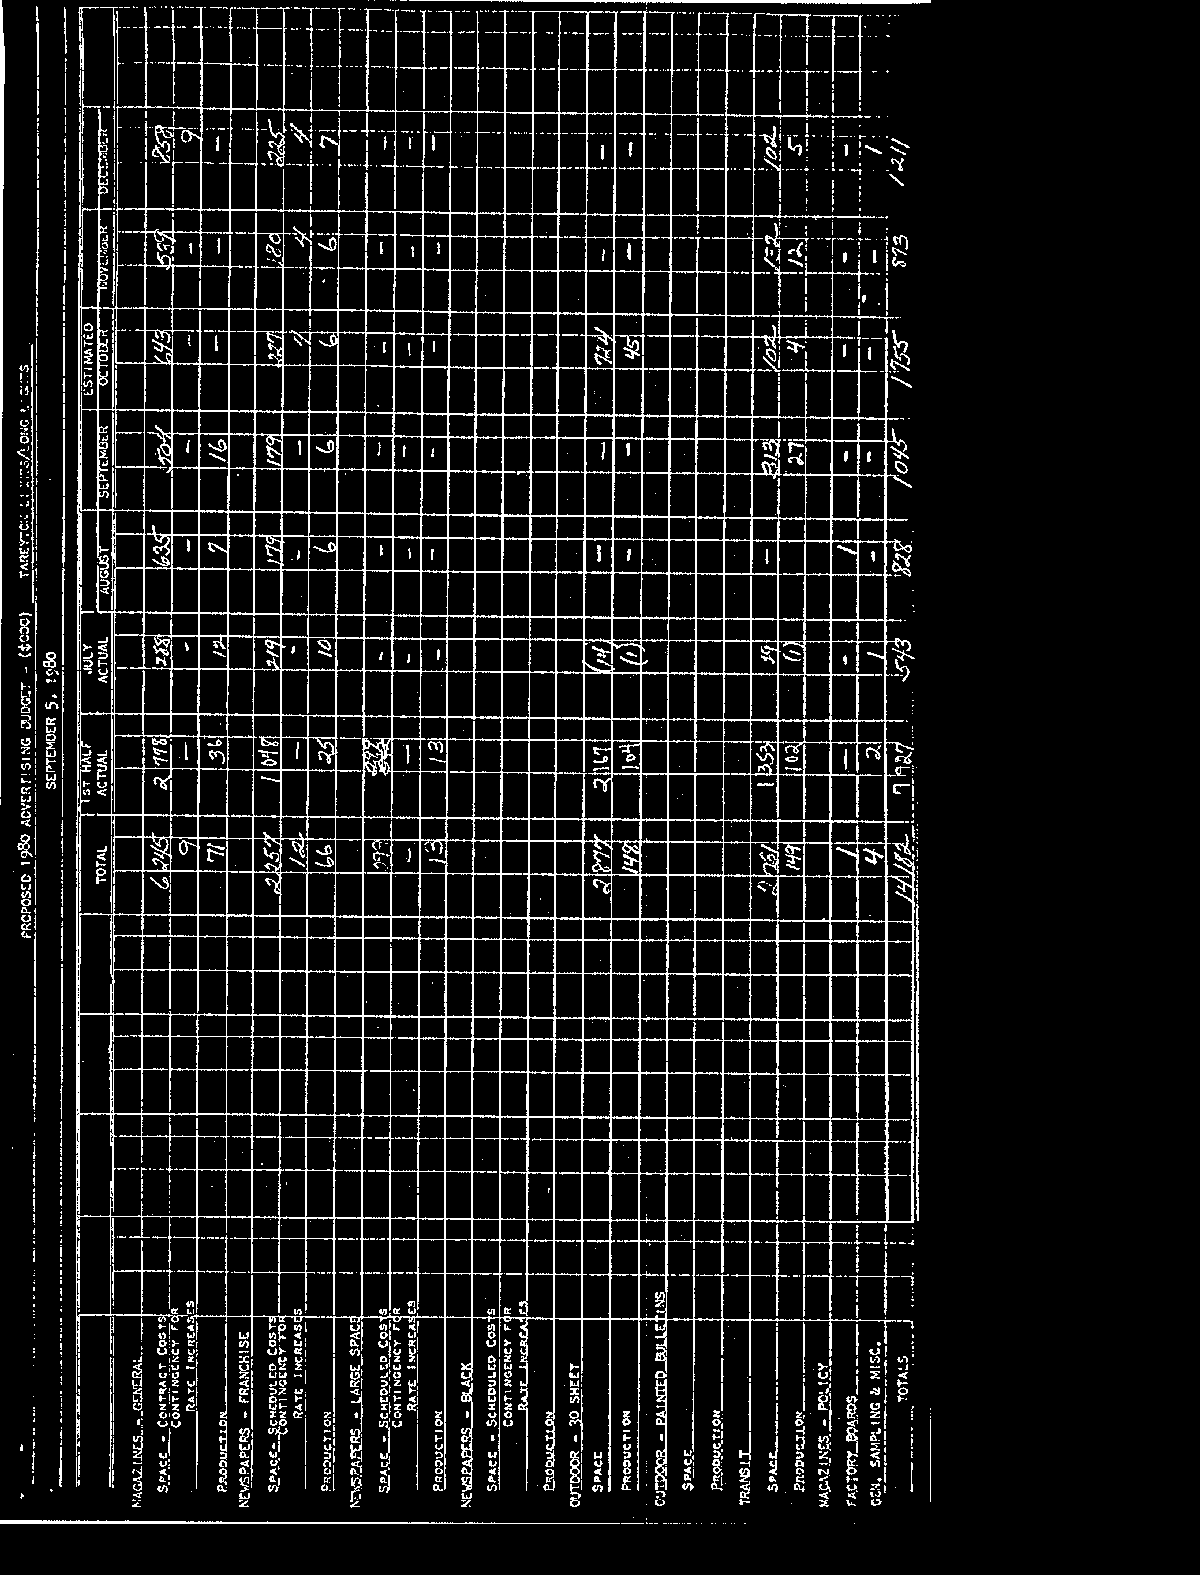 PROPOSED 1980 ADVERTISING BUDGET - ($000) TAREYTON LIGHTS/LONG LIGHTS
SEPTEMBER 5, 1980
ESTIMATED
TOTAL 1ST HALF ACTUAL JULY ACTUAL AUGUST SEPTEMBER OCTOBER NOVEMBER DECEMBER
MAGAZINES - GENERAL
SPACE - CONTRACT COSTS 6 245 2 778 288 635 504 643 539 858
CONTINGENCY FOR
RATE INCREASES 9 — - - - - - 9
PRODUCTION 71 36 12 7 16 - - -
NEWSPAPERS - FRANCHISE
SPACE - SCHEDULED COSTS 2 257 1 048 219 179 179 227 180 225
CONTINGENCY FOR
RATE INCREASES 12 — - - - 4 4 4
PRODUCTION 66 25 10 6 6 6 6 7
NEWSPAPERS - LARGE SPACE
SPACE - SCHEDULED COSTS 299 299 - - - - - -
CONTINGENCY FOR
RATE INCREASES - — - - - - - -
PRODUCTION 13 13 - - - - - -
NEWSPAPERS - BLACK
SPACE - SCHEDULED COSTS
CONTINGENCY FOR
RATE INCREASES
PRODUCTION
OUTDOOR - 30 SHEET
SPACE 2 877 2 167 (14) - - 724 - -
PRODUCTION 148 104 (1) - - 45 - -
OUTDOOR - PAINTED BULLETINS
SPACE
PRODUCTION
TRANSIT
SPACE 2 031 1 353 29 - 313 102 132 102
PRODUCTION 149 102 (1) - 27 4 12 5
MAGAZINES - POLICY
FACTORY BOARDS 1 — - 1 - - - -
GEN. SAMPLING & MISC. 4 2 1 - - - - 1
TOTALS 14 182 7 927 543 828 1 045 1 755 873 1 211